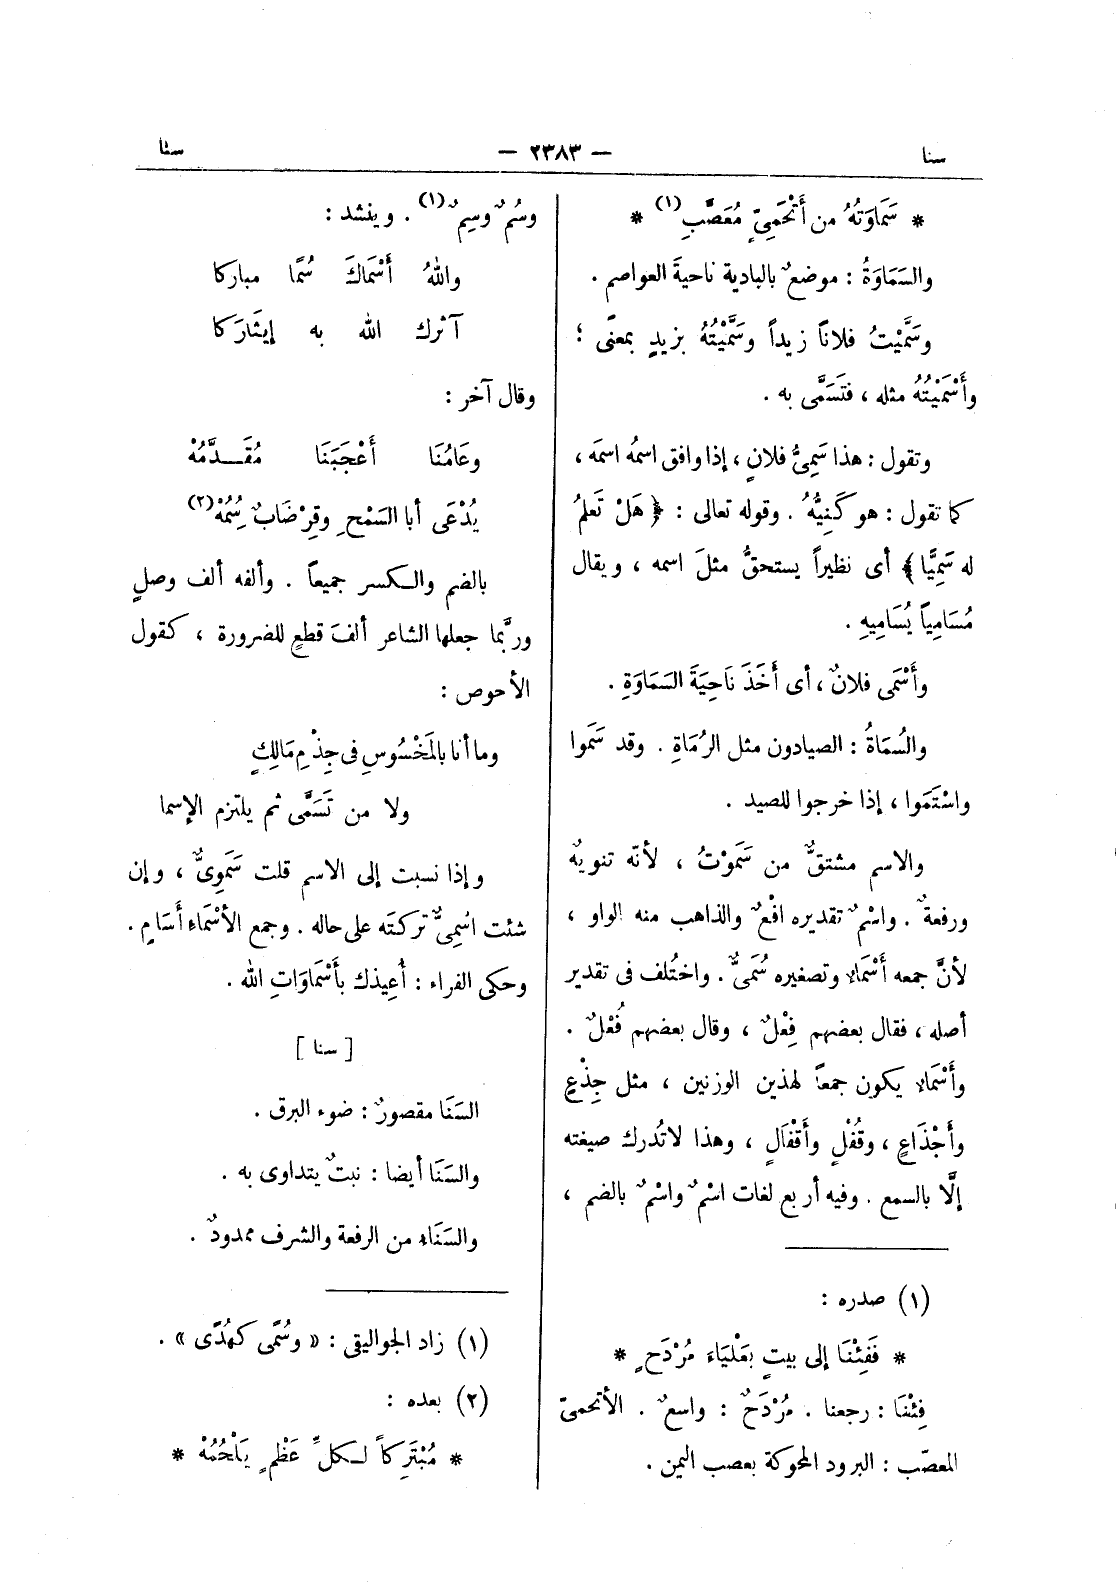 سنا
— ٢٣٨٣ —
سنا
* سَمَاوَتُهُ من أَتْحَمِىٍّ مُعَصَّبِ (١) *
والسَمَاوَةُ : موضعٌ بالبادية ناحيةَ العواصم .
وسَمَّيْتُ فلاناً زيداً وسَمَّيْتُهُ بزيدٍ بمعنًى ؛
وأَسْمَيْتُهُ مثله ، فتَسَمَّى به .
وتقول : هذا سَمِىُّ فلانٍ ، إذا وافق اسمُه اسمَه ،
كما تقول : هو كَنِيُّهُ . وقوله تعالى : ﴿ هَلْ تَعلمُ
له سَمِيًّا ﴾ أى نظيراً يستحقُّ مثلَ اسمه ، ويقال
مُسَامِياً يُسَامِيهِ .
وأَسْمَى فلانٌ ، أى أَخَذَ نَاحِيَةَ السَمَاوَةِ .
والسُمَاةُ : الصيادون مثل الرُمَاةِ . وقد سَمَوا
واسْتَمَوا ، إذا خرجوا للصيد .
والاسم مشتقٌّ من سَمَوْتُ ، لأنّه تنويهٌ
ورفعةٌ . واسْمٌ تقديره افْعٌ والذاهب منه الواو ،
لأنَّ جمعه أَسْمَاء وتصغيره سُمَىٌّ . واختُلف فى تقدير
أصله ، فقال بعضهم فِعْلٌ ، وقال بعضهم فُعْلٌ .
وأَسْمَاء يكون جمعاً لهذين الوزنين ، مثل جِذْعٍ
وأَجْذَاعٍ ، وقُفْلٍ وأَقْفَالٍ ، وهذا لاتُدرك صيغته
إلَّا بالسمع . وفيه أربع لغات اسْمٌ واسْمٌ بالضم ،
(١) صدره :
* فَفِئْنَا إلى بيتٍ بعَلْيَاءَ مُرْدَحٍ *
فِئْنَا : رجعنا . مُرْدَحٌ : واسعٌ . الأتحمىّ
المعصّب : البرود المحوكة بعصب اليمن .
وسُمٌ وسِمٌ (١) . وينشد :
واللهُ أَسْمَاكَ سُمًا مباركا
آثرك الله به إيثَارَكا
وقال آخر :
وعَامُنَا أَعْجَبَنَا مُقَدَّمُهْ
يُدْعَى أبا السَمْحِ وقِرْضَابٌ سُِمُهْ (٢)
بالضم والكسر جميعاً . وألفه ألف وصلٍ
وربَّما جعلها الشاعر ألفَ قطعٍ للضرورة ، كقول
الأحوص :
وما أنا بالمَخْسُوسِ فى جِذْمِ مَالِكٍ
ولا من تَسَمَّى ثم يلتزم الإسما
وإذا نسبت إلى الاسم قلت سَمَوِىٌّ ، وإن
شئت اسْمِىٌّ تركته على حاله . وجمع الأسْمَاءِ أَسَامٍ .
وحكى الفراء : أُعِيذك بأَسْمَاوَاتِ الله .
[ سنا ]
السَنَا مقصورٌ : ضوء البرق .
والسَنَا أيضا : نبتٌ يتداوى به .
والسَنَاء من الرفعة والشرف ممدودٌ .
(١) زاد الجواليقى : « وسُمًى كهُدًى » .
(٢) بعده :
* مُبْتَرِكاً لكلِّ عَظْمٍ يَلْحُمُهْ *